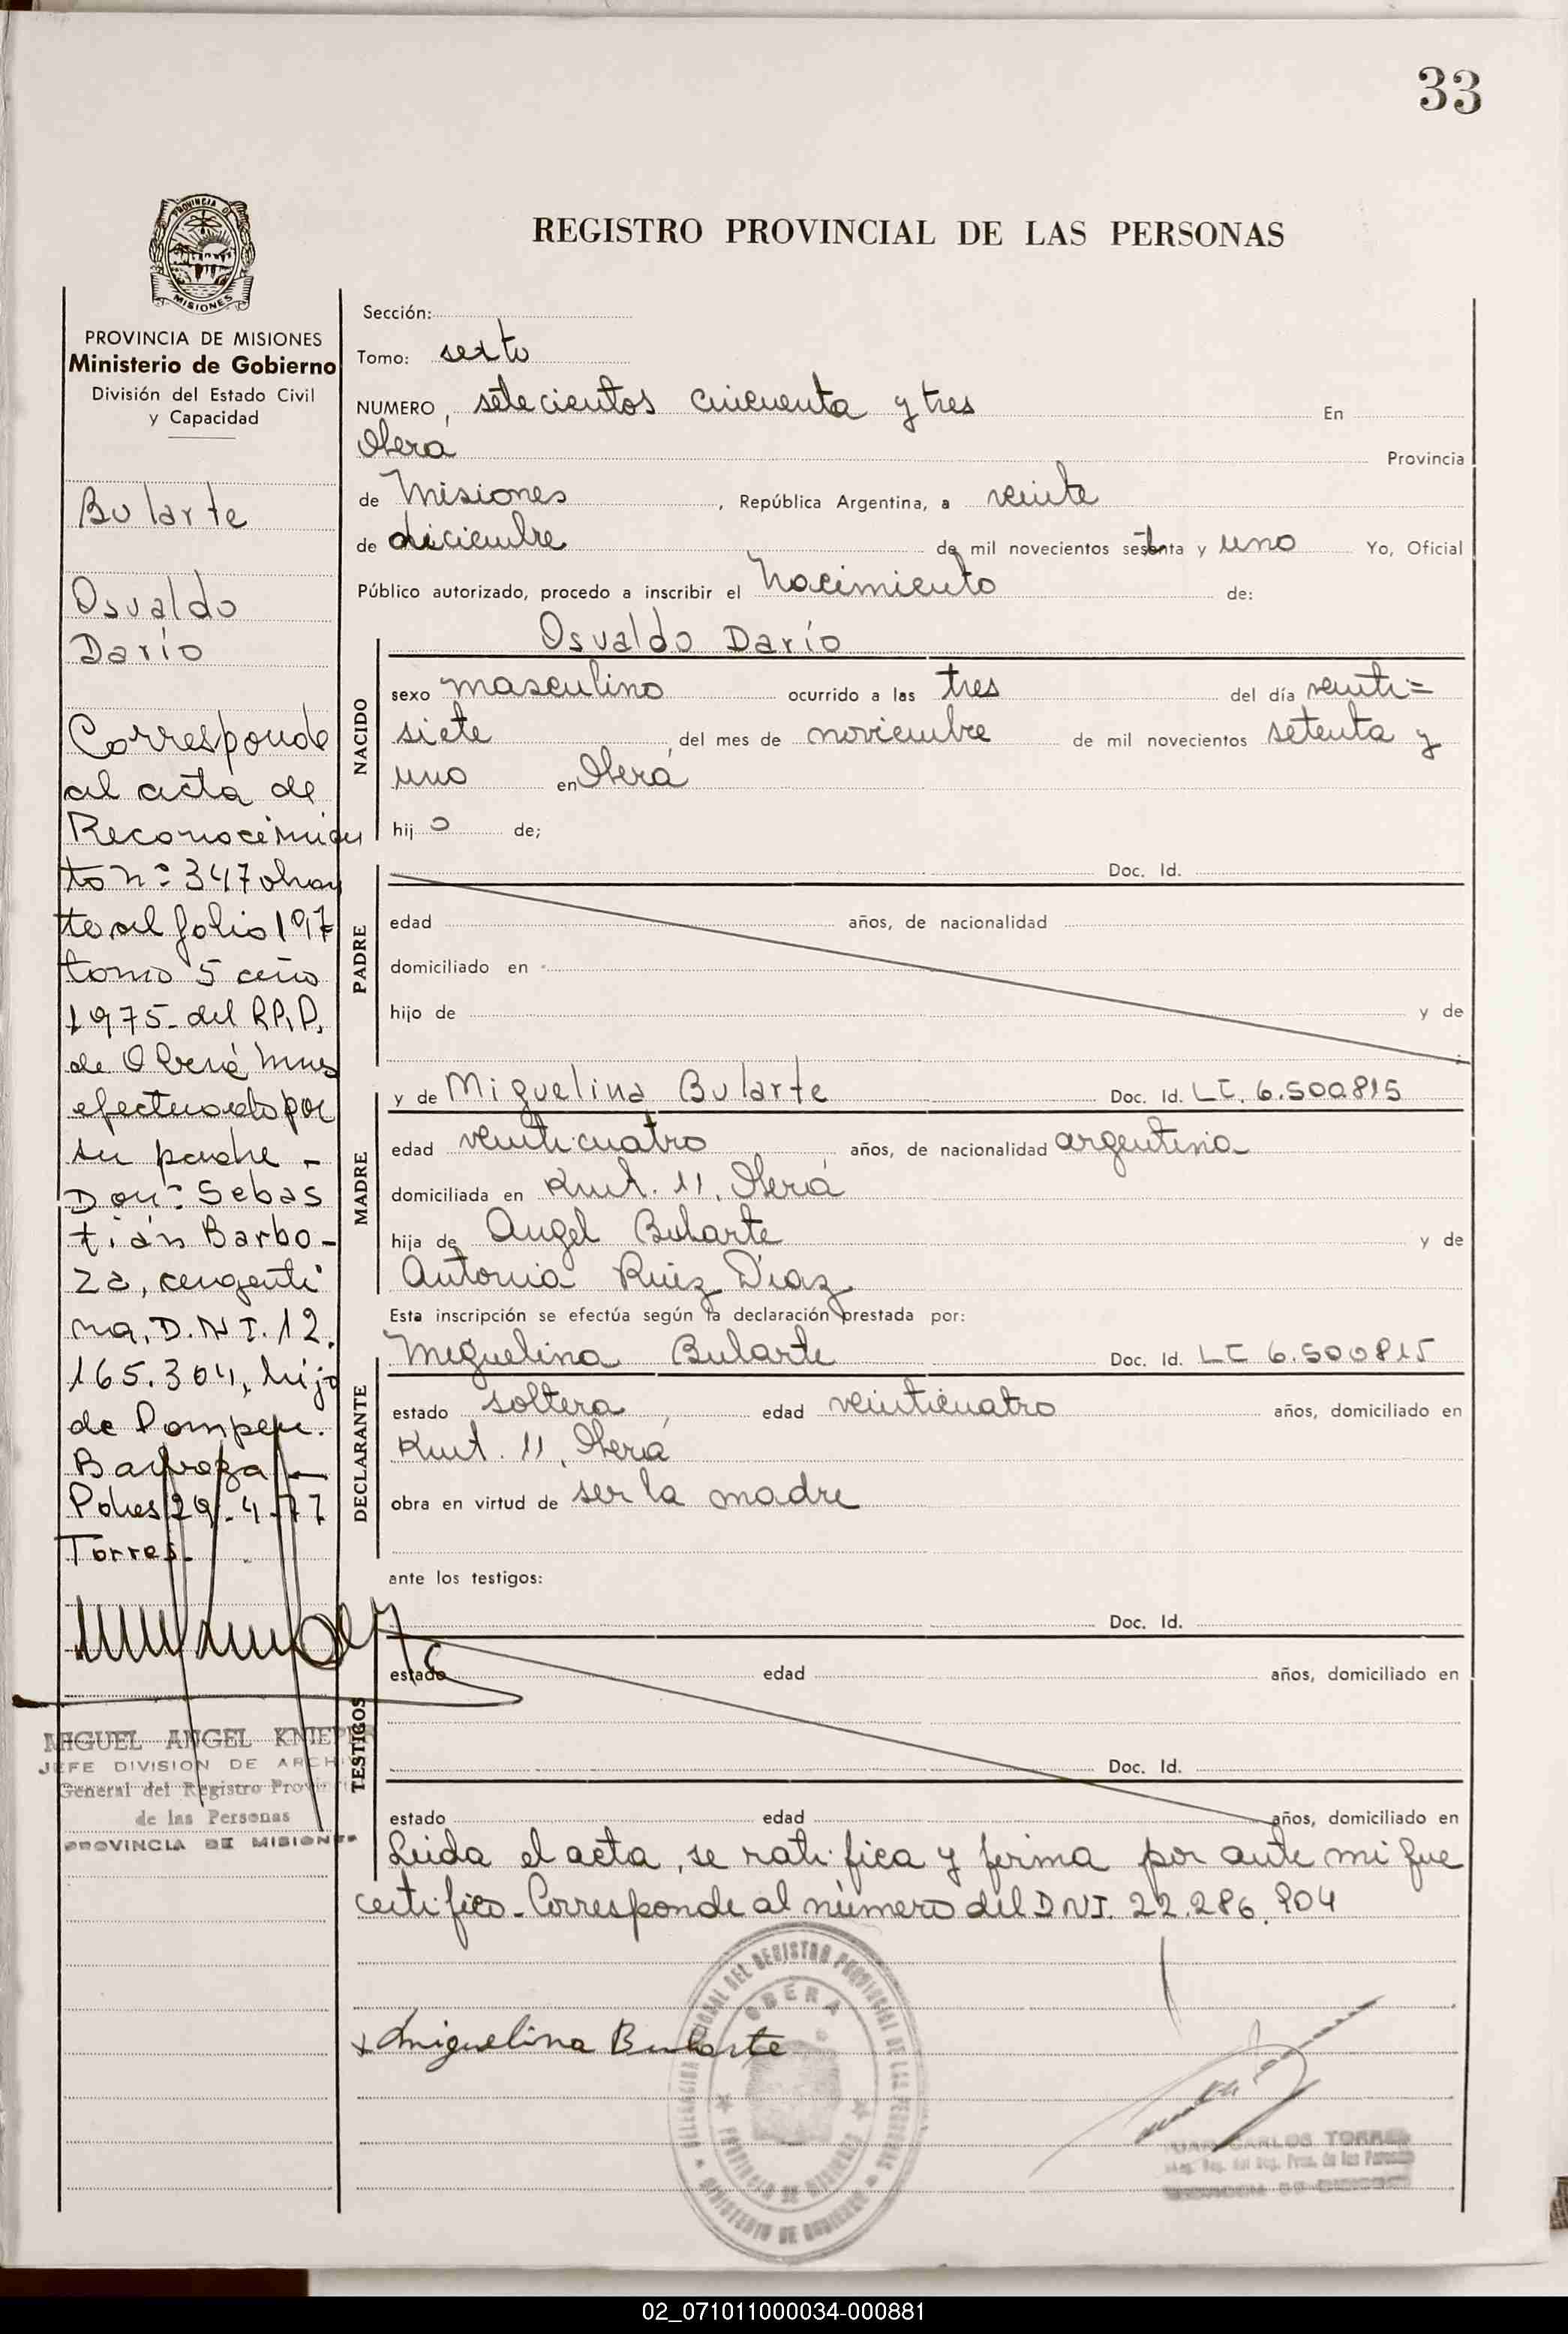 33
PROVINCIA DE
MISIONES
REGISTRO PROVINCIAL DE LAS PERSONAS
PROVINCIA DE MISIONES
Ministerio de Gobierno
División del Estado Civil
y Capacidad
Bularte
Osvaldo
Darío
Corresponde
al acta de
Reconocimien
to nº 347 obran
te al folio 197
tomo 5 año
1975- del R.P.P.
de Oberá Mnes
efectuado por
su padre -
Don: Sebas
tián Barbo-
za, argenti
na, D.N.I. 12.
165.304, hijo
de Pompeu.
Barboza -
Pdas 29-4-77
Torres.
MIGUEL ANGEL KNIEP
JEFE DIVISION DE ARCHI
General del Registro Provin
de las Personas
PROVINCIA DE MISIONES
Sección:
Tomo: sexto
NUMERO, setecientos cincuenta y tres En
Oberá Provincia
de Misiones, República Argentina, a veinte
de diciembre de mil novecientos setenta y uno Yo, Oficial
Público autorizado, procedo a inscribir el Nacimiento de:
Osvaldo Darío
NACIDO
sexo masculino ocurrido a las tres del día veinti=
siete, del mes de noviembre de mil novecientos setenta y
uno en Oberá
hijo de;
PADRE
Doc. Id.
edad años, de nacionalidad
domiciliado en
hijo de y de
MADRE
y de Miguelina Bularte Doc. Id. LC. 6.500815
edad veinticuatro años, de nacionalidad argentina
domiciliada en Kmt. 11, Oberá
hija de Angel Bularte y de
Antonia Ruiz Diaz
Esta inscripción se efectúa según la declaración prestada por:
DECLARANTE
Miguelina Bularte Doc. Id. LC 6.500815
estado soltera, edad veinticuatro años, domiciliado en
Kmt. 11, Oberá
obra en virtud de ser la madre
ante los testigos:
TESTIGOS
Doc. Id.
estado edad años, domiciliado en
Doc. Id.
estado edad años, domiciliado en
Leida el acta, se ratifica y firma por ante mi que
certifico - Corresponde al número del DNI. 22.286.904
x Miguelina Bularte
DELEGACION DEL REGISTRO PROVINCIAL DE LAS PERSONAS
OBERA
PROVINCIA DE MISIONES
MINISTERIO DE GOBIERNO
JUAN CARLOS TORRES
02_071011000034-000881